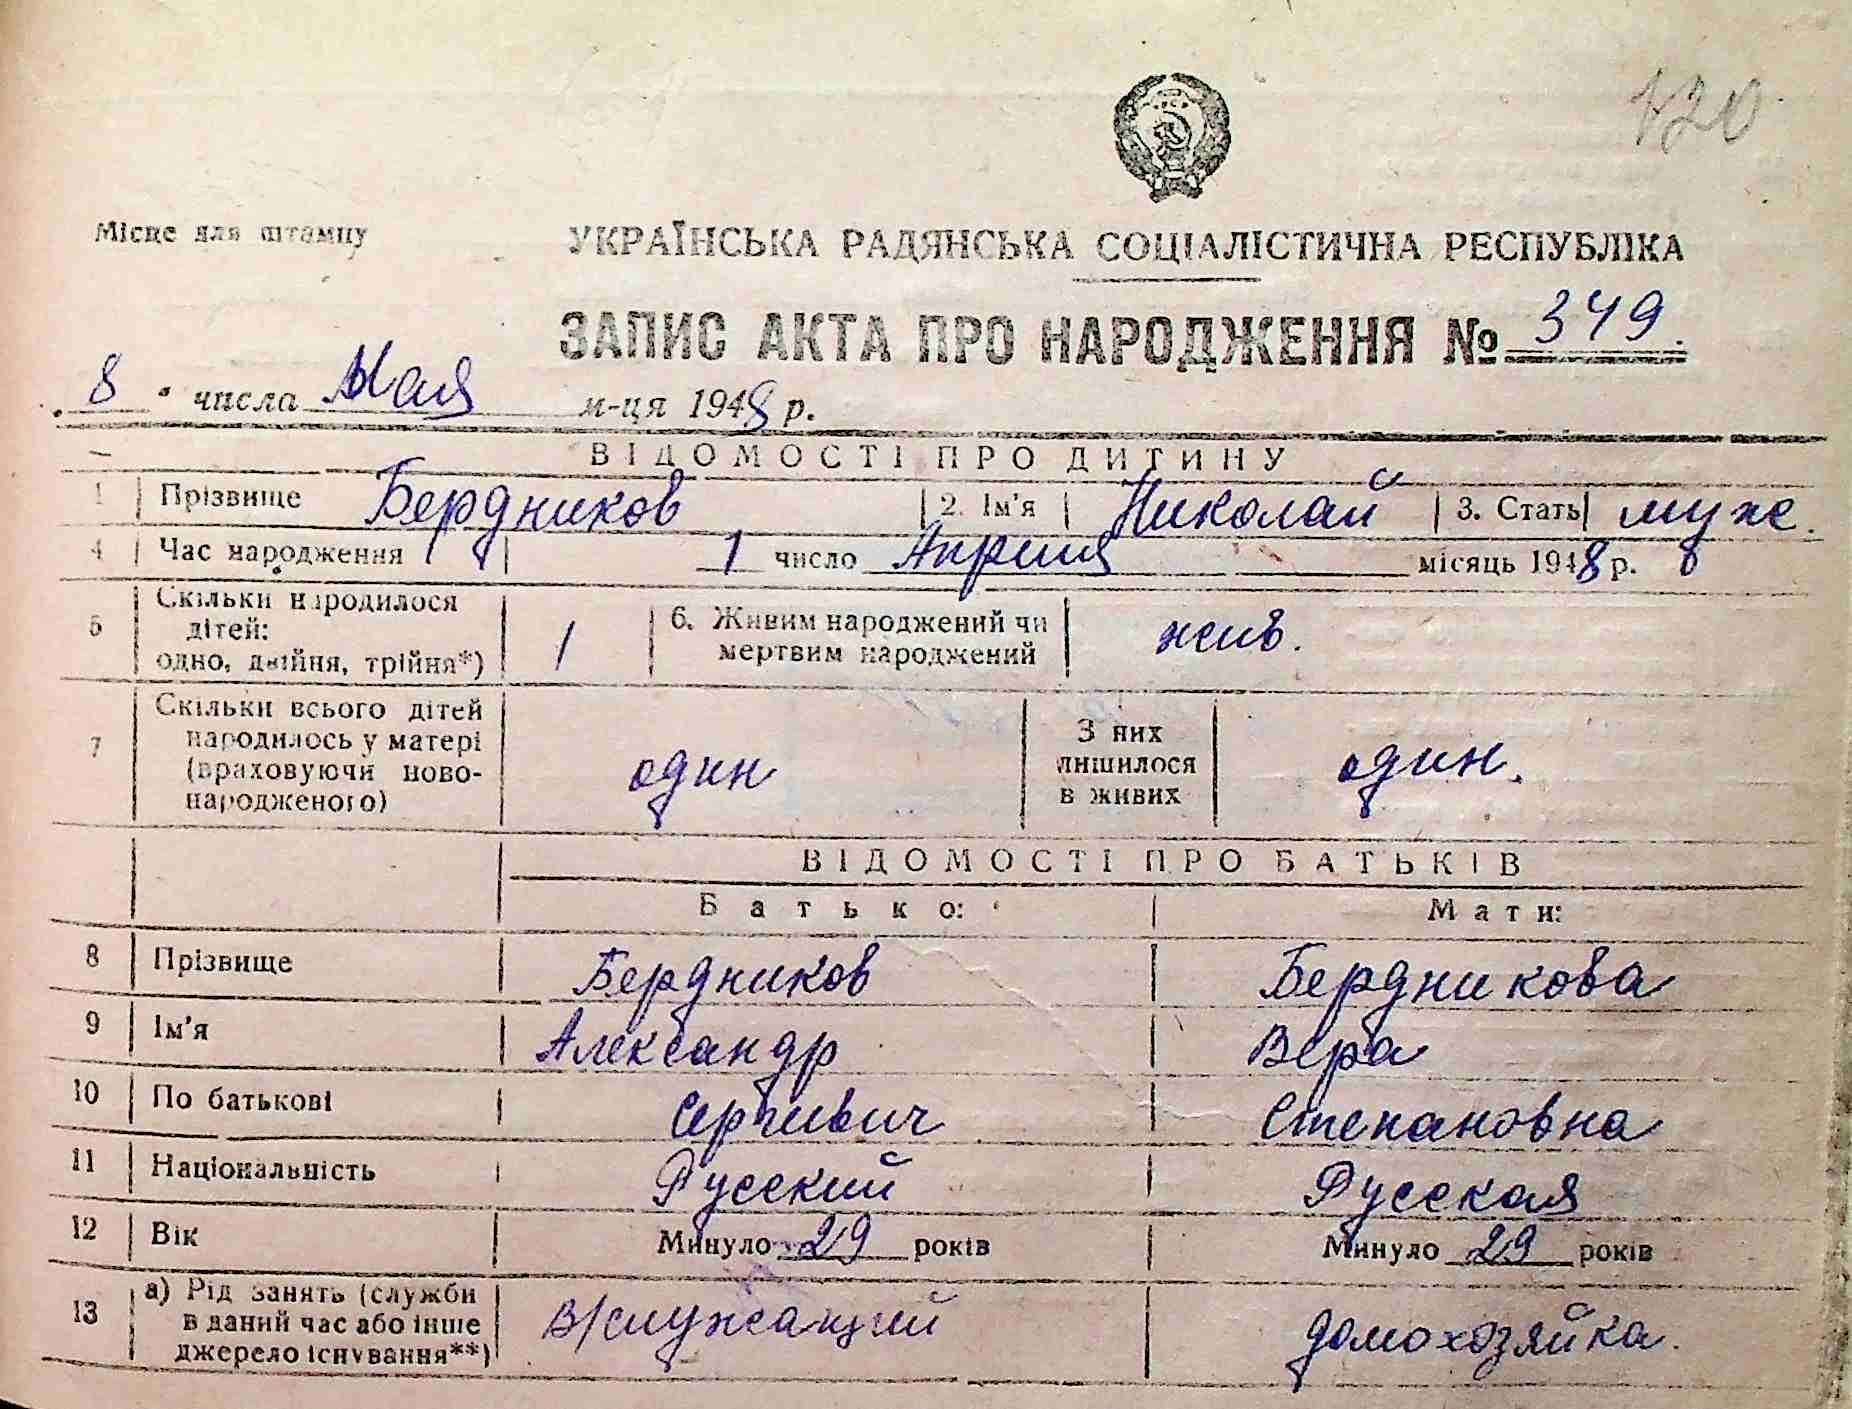 420
Місце для штампу
УКРАЇНСЬКА РАДЯНСЬКА СОЦІАЛІСТИЧНА РЕСПУБЛІКА
ЗАПИС АКТА ПРО НАРОДЖЕННЯ № 349.
„8“ числа Мая м-ця 1948 р.
ВІДОМОСТІ ПРО ДИТИНУ
1 Прізвище Бердников 2. Ім'я Николай 3. Стать муж.
4 Час народження 1 число Апреля місяць 1948 р.
5 Скільки народилося дітей: одно, двійня, трійня*) 1 6. Живим народжений чи мертвим народжений жив.
7 Скільки всього дітей народилось у матері (враховуючи новонародженого) один З них лишилося в живих один.
ВІДОМОСТІ ПРО БАТЬКІВ
Батько: Мати:
8 Прізвище Бердников Бердникова
9 Ім'я Александр Вера
10 По батькові Сергиевич Степановна
11 Національність Русский Русская
12 Вік Минуло 29 років Минуло 29 років
13 а) Рід занять (служби в даний час або інше джерело існування**) В/служащий домохозяйка.